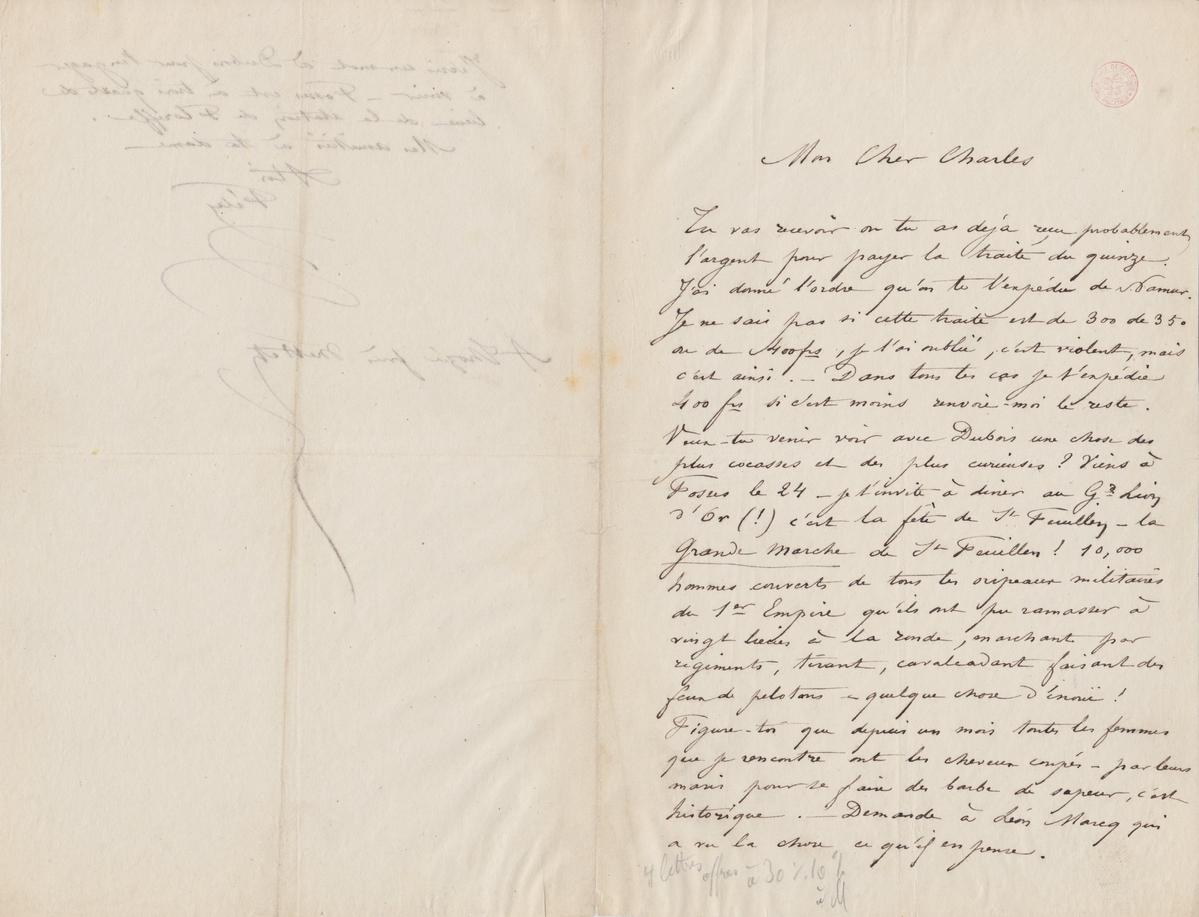 Mon Cher Charles
Tu vas recevoir ou tu as déjà reçu probablement
l'argent pour payer la traite du quinze.
J'ai donné l'ordre qu'on te l'expédie de Namur.
Je ne sais pas si cette traite est de 300 de 350
ou de 400 frs, je l'ai oublié, c'est violent, mais
c'est ainsi. — Dans tous les cas je t'expédie
400 frs si c'est moins renvoie-moi le reste.
Veux-tu venir voir avec Dubois une chose des
plus cocasses et des plus curieuses? Viens à
Fosses le 24 — je t'invite à diner au Gd Lion
d'Or (!) c'est la fête de St Feuillen — la
Grande marche de St Feuillen! 10,000
hommes couverts de tous les oripeaux militaires
du 1er Empire qu'ils ont pu ramasser à
vingt lieues à la ronde, marchant par
régiments, tirant, cavalcadant faisant des
feux de pelotons — quelque chose d'énorme!
Figure-toi que depuis un mois toutes les femmes
que je rencontre ont les cheveux coupés — par leurs
maris pour se faire des barbe de sapeur, c'est
historique. — Demande à Léon Marcq qui
a vu la chose, ce qu'il en pense.
4 lettres offres à 30 % 10 %
à M